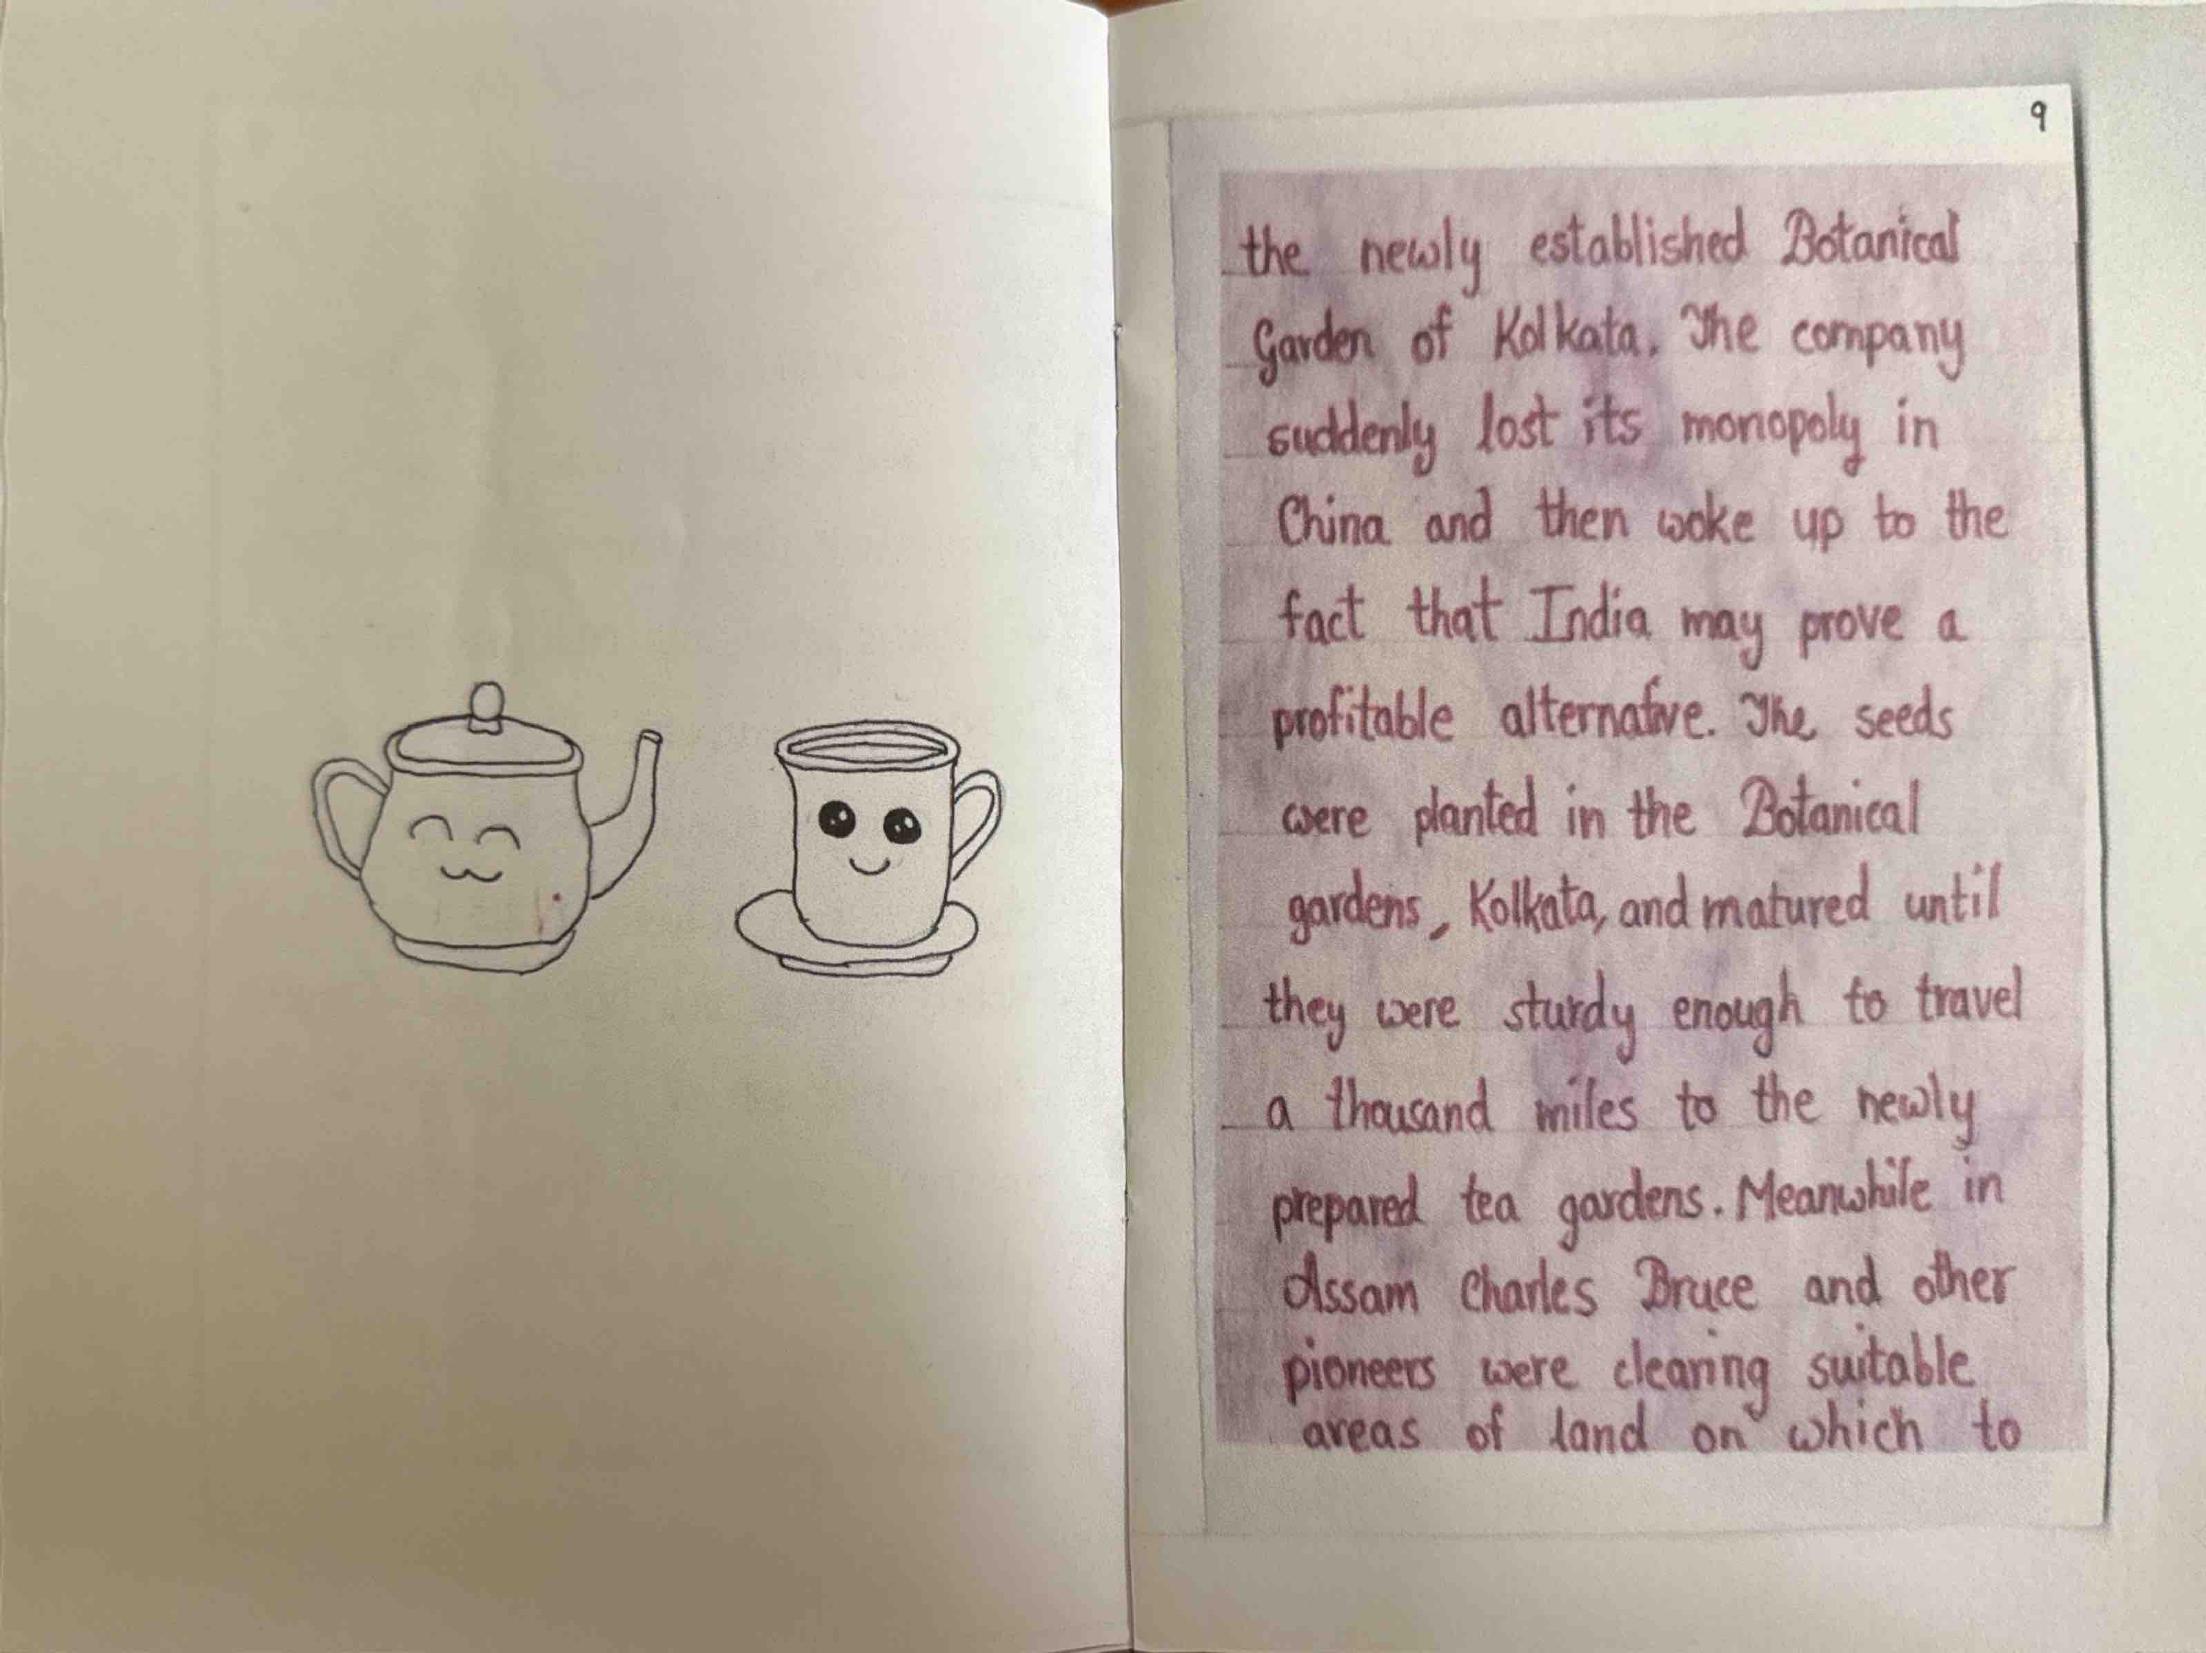 9
the newly established Botanical
Garden of Kolkata. The company
suddenly lost its monopoly in
China and then woke up to the
fact that India may prove a
profitable alternative. The seeds
were planted in the Botanical
gardens, Kolkata, and matured until
they were sturdy enough to travel
a thousand miles to the newly
prepared tea gardens. Meanwhile in
Assam Charles Bruce and other
pioneers were clearing suitable
areas of land on which to